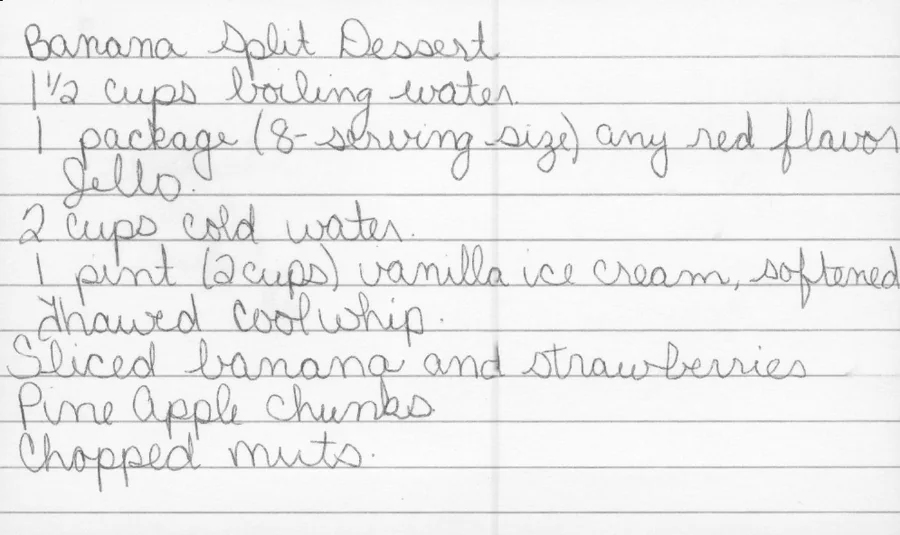 Banana Split Dessert
1 1/2 cups boiling water.
1 package (8-serving size) any red flavor
Jello.
2 cups cold water.
1 pint (2 cups) vanilla ice cream, softened
Thawed cool whip.
Sliced banana and strawberries
Pine Apple Chunks
Chopped nuts.